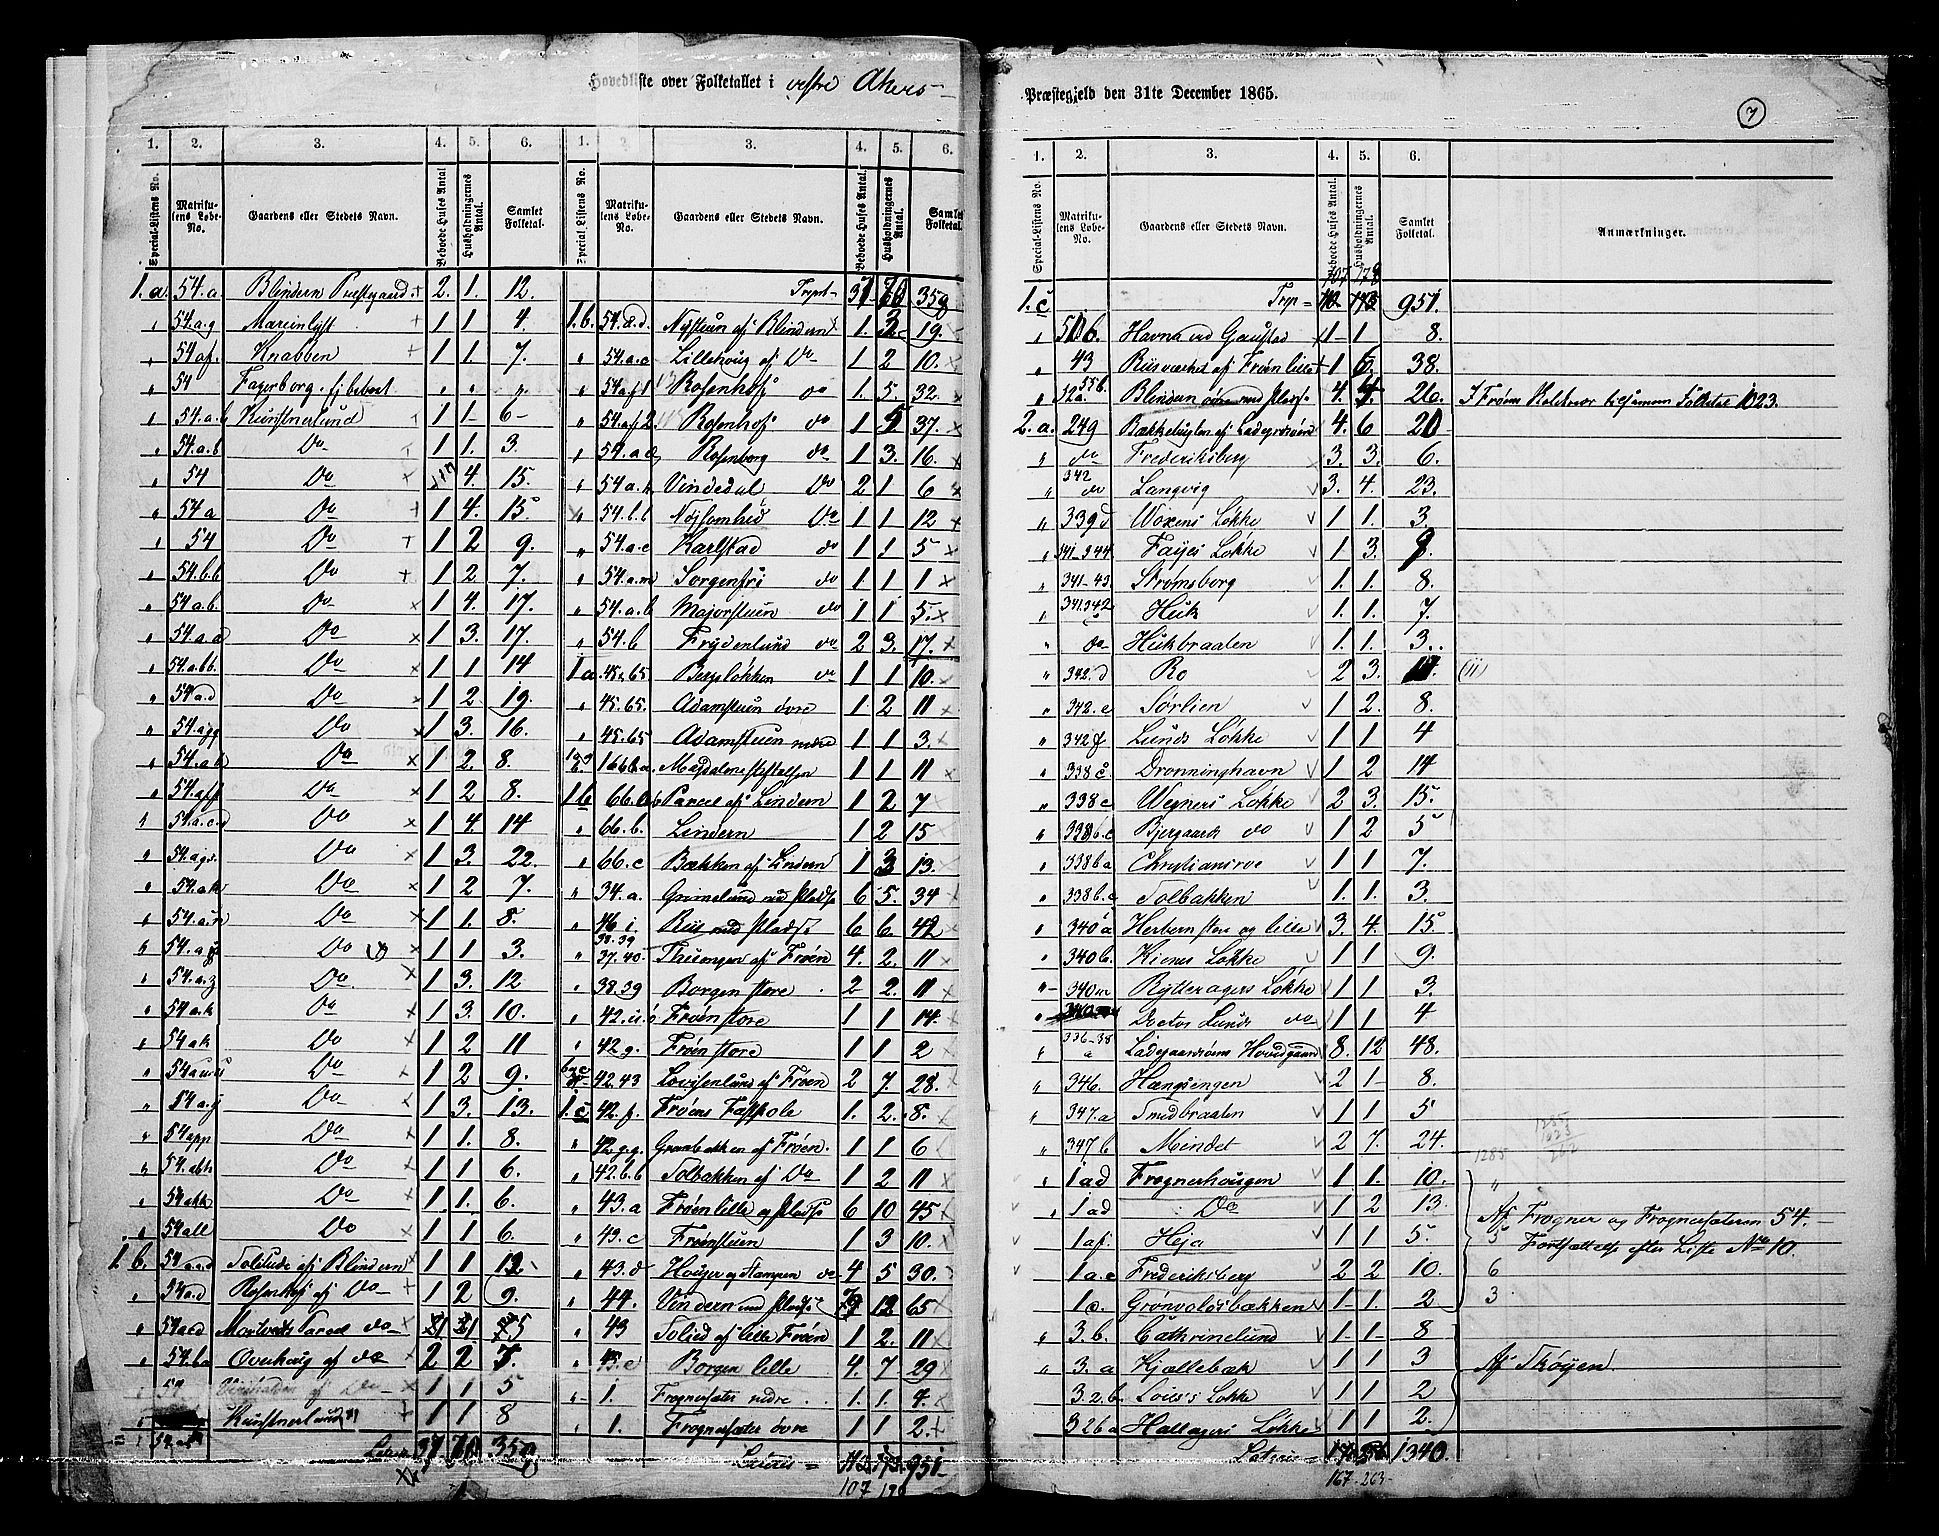 Hovedliste over Folketallet i vestre Akers
1. 2. 3. 4. 5. 6. 1. 2. 3. 4. 5. 6.
Special-Listens No. Matrikulens Løbe-No. Gaardens eller Stedets Navn. Beboede Huses Antal Husholdningernes Antal. Samlet Folketal. Special-Listens No. Matrikulens Løbe-No. Gaardens eller Stedets Navn. Beboede Huses Antal. Husholdningernes Antal. Samlet Folketal.
1.a. 54.a Blindern Præstgaard 2. 1. 12.
" 54.a.g Marienlyst 1 1 4.
" 54 af. Knabben 1 1. 7.
" 54 Fagerborg. ej beboet " " "
" 54.a.b Kunstnerlund 1 1 6
" 54.a.b Do 1 1. 3.
" 54 Do 4. 15.
" 54 a Do 1 4. 15.
" 54 Do 1 2 9.
" 54.b.b Do 1 2 7.
" 54.a.b. Do 1 4. 17.
" 54.a.d Do 1 3. 17.
" 54.a.bb. Do 1 1 14
" 54 a.d Do 1 2 19.
" 54.agg Do 1 3. 16.
" 54.a.b Do 1 2. 8.
" 54.aff Do 1 2 8.
" 54.a.c.d Do 1 4. 14
" 54.ags. Do 1 3. 22.
" 54.a.k Do 1 2 7.
" 54.a.n Do 1 1. 8.
" Do 1 1 3.
" 54.a.z Do 1 3. 12
" 54.a.k Do 1 3. 10.
" 54 ak Do 1 2 11
" Do 1 2 9.
" 54 a.y Do 1 3. 13.
" 54 app Do 1 1. 8.
" 54.abh Do 1 1 6.
" 54 akk Do 1 1. 6.
" 54 all Do 1 1 6.
1. b. 54 a.d Solitude af Blindern 1 1 12.
" 54 a.d Rosenhof af Do 1 2 9.
" 54 a.d Parcel do 5
" 54.ba Overhaug af do 2 2 7.
" 54. af Do 1 1 5
" Kunstnerlund 1 1 8
Lateris 37. 70 358
Trpt 37 70 358
1.b. 54.d.d. Nystuen af Blindern 1. 3 19.
" 54.a.c Lillehaug af Do 1 2 10.
" 54.af 1 Rosenhof do 1. 5. 32.
" 54.af 2 Rosenhof do 1 5 37.
" 54.a d Rosenborg do 1 3. 16.
" 54.a.h Vindedal Do 2 1 6
" 54.b.b Nøjsomhed Do 1 1 12
" 54.a.c Karlstad do 1 1 5
" 54.a.m Sorgenfri do 1 1 1
" 54.a.b Majorstuen do 1 1 5.
" 54.b Frydenlund do 2 3. 17.
1 a. 45.65 Bergsløkken do 1 1 10.
" 45.65. Adamstuen øvre 1 2 11
" 45.65 Adamstuen nedre 1 1 3.
166b.a. Magdalene stiftelsen 1 1 11
1.b 66.b Parcel af Lindern 1 2 7
" 66.b. Lindern 1 2 15
" 66.c Bækken af Lindern 1 3 13.
" 34.a. Grimelund med Pladse 6 5. 34
" 46 i. Riis med Pladse 6 6. 42
" 38.39 37.40 Thusengen af Frøen 4. 2. 11
" 38.39 Borgen store 2 2. 11
" 42. Frøen store 1 1 14.
" 42.g. Frøen store 1 1 2
42.43 Lovisenlund af Frøen 2 7. 28.
1.c 42.f. Frøens Fattskole 1. 2. 8.
" 42.g.g. Granbakken af Frøen. 1 1 6
" 42.b.b Solbakken af Do 1 2 11
" 43.a Frøen lille og Pladse 6 10 45
" 43.c Frøenstuen 1 3 10.
" 43.d Houger og Stampen do 4 5 30.
" 44. Vindern med Pladse 12 65
" 43 Solied af lille Frøen 1 2. 11
" 43.c Borgen lille 4. 7 29
" 1. Frognersæter nedre 1. 1. 4.
" 1. Frognersæter øvre 1 1 2
Lateris = 112 173 951
107
Præstegjeld den 31te December 1865.
7
1. 2. 3. 4. 5. 6.
Special-Listens No. Matrikulens Løbe-No. Gaardens eller Stedets Navn. Beboede Huses Antal. Husholdningernes Antal. Samlet Folketal. Anmærkninger.
107 178
1.c Trp = 112 173 951.
" 50b. Havna ved Gaustad 1 1 8.
" 43 Riisværket af Frøen lille 1 6 38.
" 52a. 55b. Blindern øvre med Pladse 4. 4. 26. I Frøens Skoledistr tilsammen Folketal 1023.
2. a. 249 Bækkehuglen af Ladegrsøen 4. 6 20
" do Frederiksberg 3. 3. 6.
" 342 do Langvig 3. 4. 23.
" 339 d Woxens Løkke 1 1. 3.
" 341-344 Fayes Løkke 1 3. 9.
" 341-43 Strømsborg 1. 1. 8.
" 341.342 Huk 1. 1. 7.
" do Hukbraaten 1. 1. 3.
" 342.d Ro 2 3. 11. (11)
" 342.e Sørlien 1 2. 8.
" 342 f Lunds Løkke 1 1 4
" 338 c Dronninghavn 1 2 14
" 338 c Wegners Løkke 2 3. 15.
" 338b.c Bjergaards do 1 2 5
" 338 b a Christiansroe 1 1 7.
" 338 b.a Solbakken 1. 1. 3.
" 340 a Herbern store og lille 3. 4. 15.
" 340 b. Kiærs Løkke 1 1 9.
" 340 m Rytteragers Løkke 1 1 3.
" Doctor Lunds do 1 1 4
" 336-38 a Ladegaardsøens Hovedgaard 8. 12 48.
" 346. Hængsengen 2 1 8.
" 347.a Smedbraaten 1 1 5
" 347 b Mendet 2 7. 24.
" 1 ad Frognerhaugen 1 1. 10.
" 1 ad Do 1 2 13.
1 af. Heja 1 1 5.
1 a.e Frederiksberg 2 2 10.
1 c. Grønvoldsbækken 1 1. 2
" 3.b. Cathrinelund 1 1 8
" 3. a Kjællebæk 1 1 3
3.2 b Løkke 1 1 2
3 2b a Hallagers Løkke 1 1 2.
Lateris = 1340.
167 263
1285 1023 262
1285
Af Frogner og Frognersæteren 54.
5 Fortsættelse efter Liste No 10.
6
3
Af Skøyen.